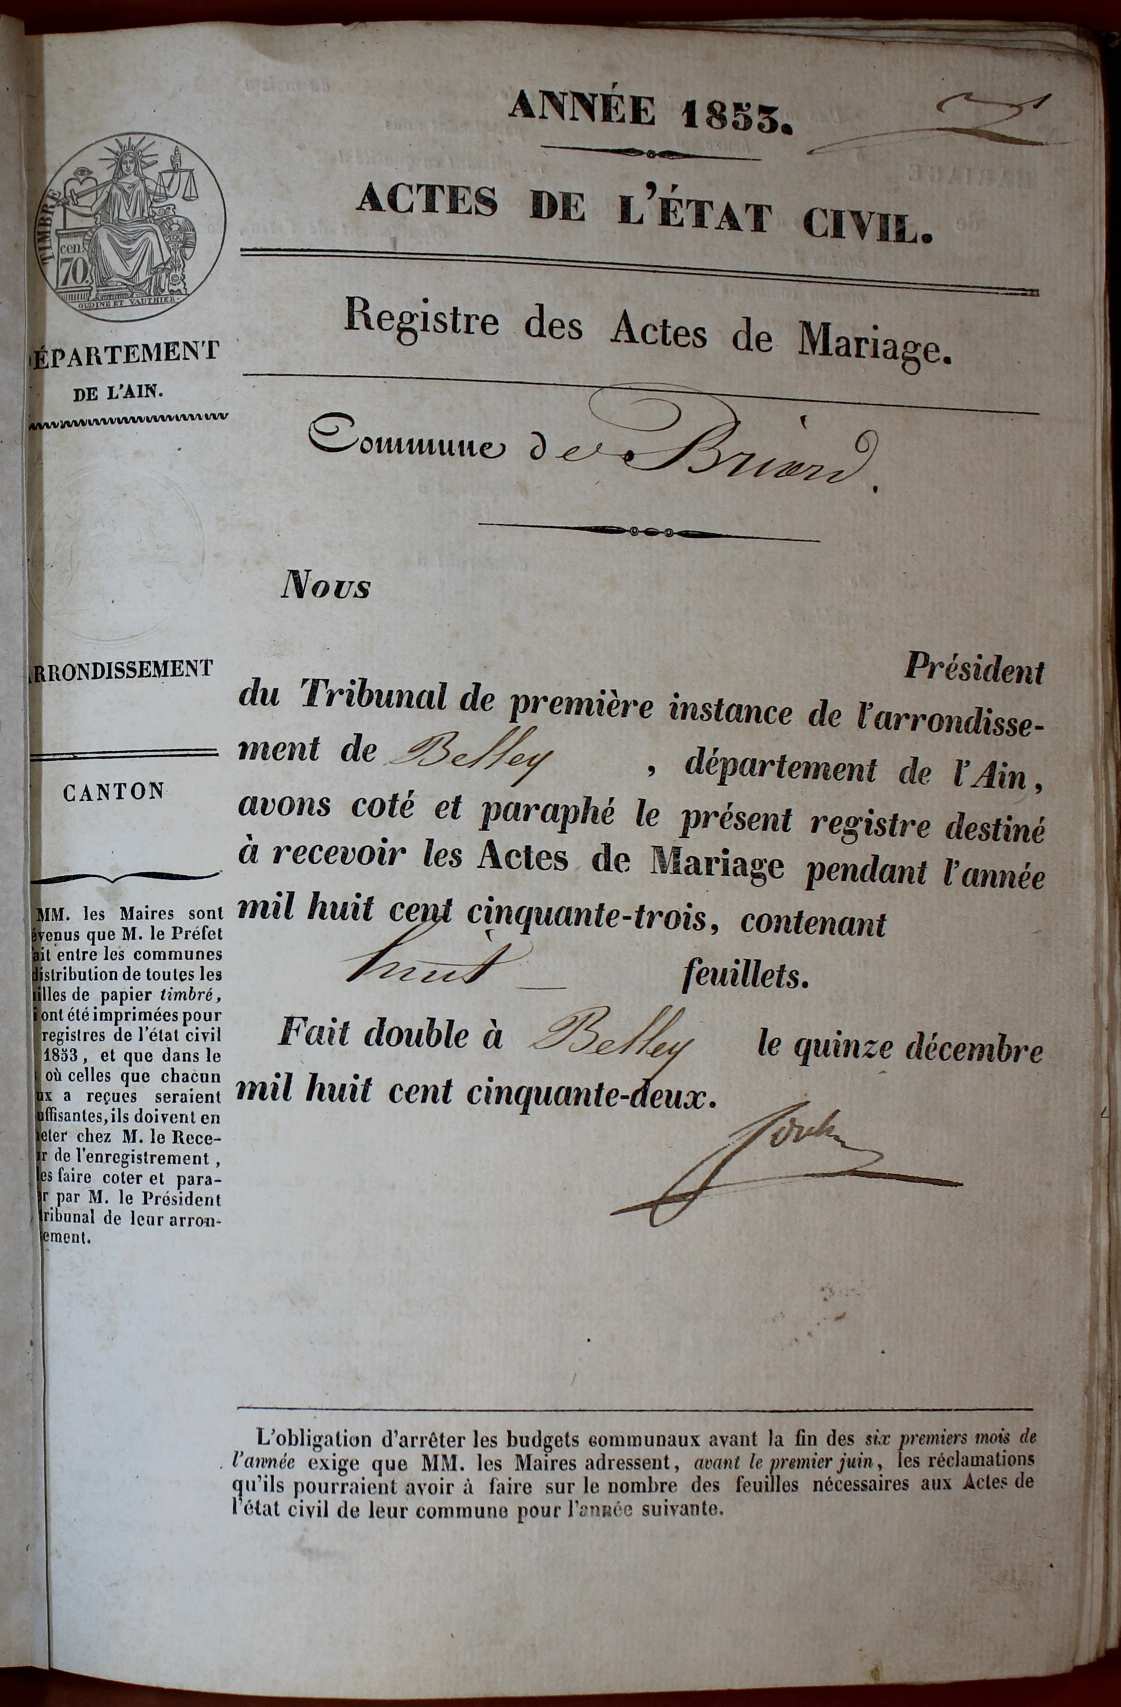 ANNÉE 1853.
ACTES DE L'ÉTAT CIVIL.
TIMBRE
cen.
70
OUDINÉ ET VAUTHIER
Registre des Actes de Mariage.
ÉPARTEMENT
DE L'AIN.
Commune de Briord.
Nous
Président
du Tribunal de première instance de l'arrondisse-
ment de Belley , département de l'Ain,
avons coté et paraphé le présent registre destiné
à recevoir les Actes de Mariage pendant l'année
mil huit cent cinquante-trois, contenant
huit feuillets.
Fait double à Belley le quinze décembre
mil huit cent cinquante-deux.
RRONDISSEMENT
CANTON
MM. les Maires sont
évenus que M. le Préfet
ait entre les communes
distribution de toutes les
illes de papier timbré,
i ont été imprimées pour
registres de l'état civil
1853, et que dans le
où celles que chacun
ux a reçues seraient
uffisantes, ils doivent en
eter chez M. le Rece-
r de l'enregistrement,
es faire coter et para-
r par M. le Président
ribunal de leur arron-
ement.
L'obligation d'arrêter les budgets communaux avant la fin des six premiers mois de
l'année exige que MM. les Maires adressent, avant le premier juin, les réclamations
qu'ils pourraient avoir à faire sur le nombre des feuilles nécessaires aux Actes de
l'état civil de leur commune pour l'année suivante.